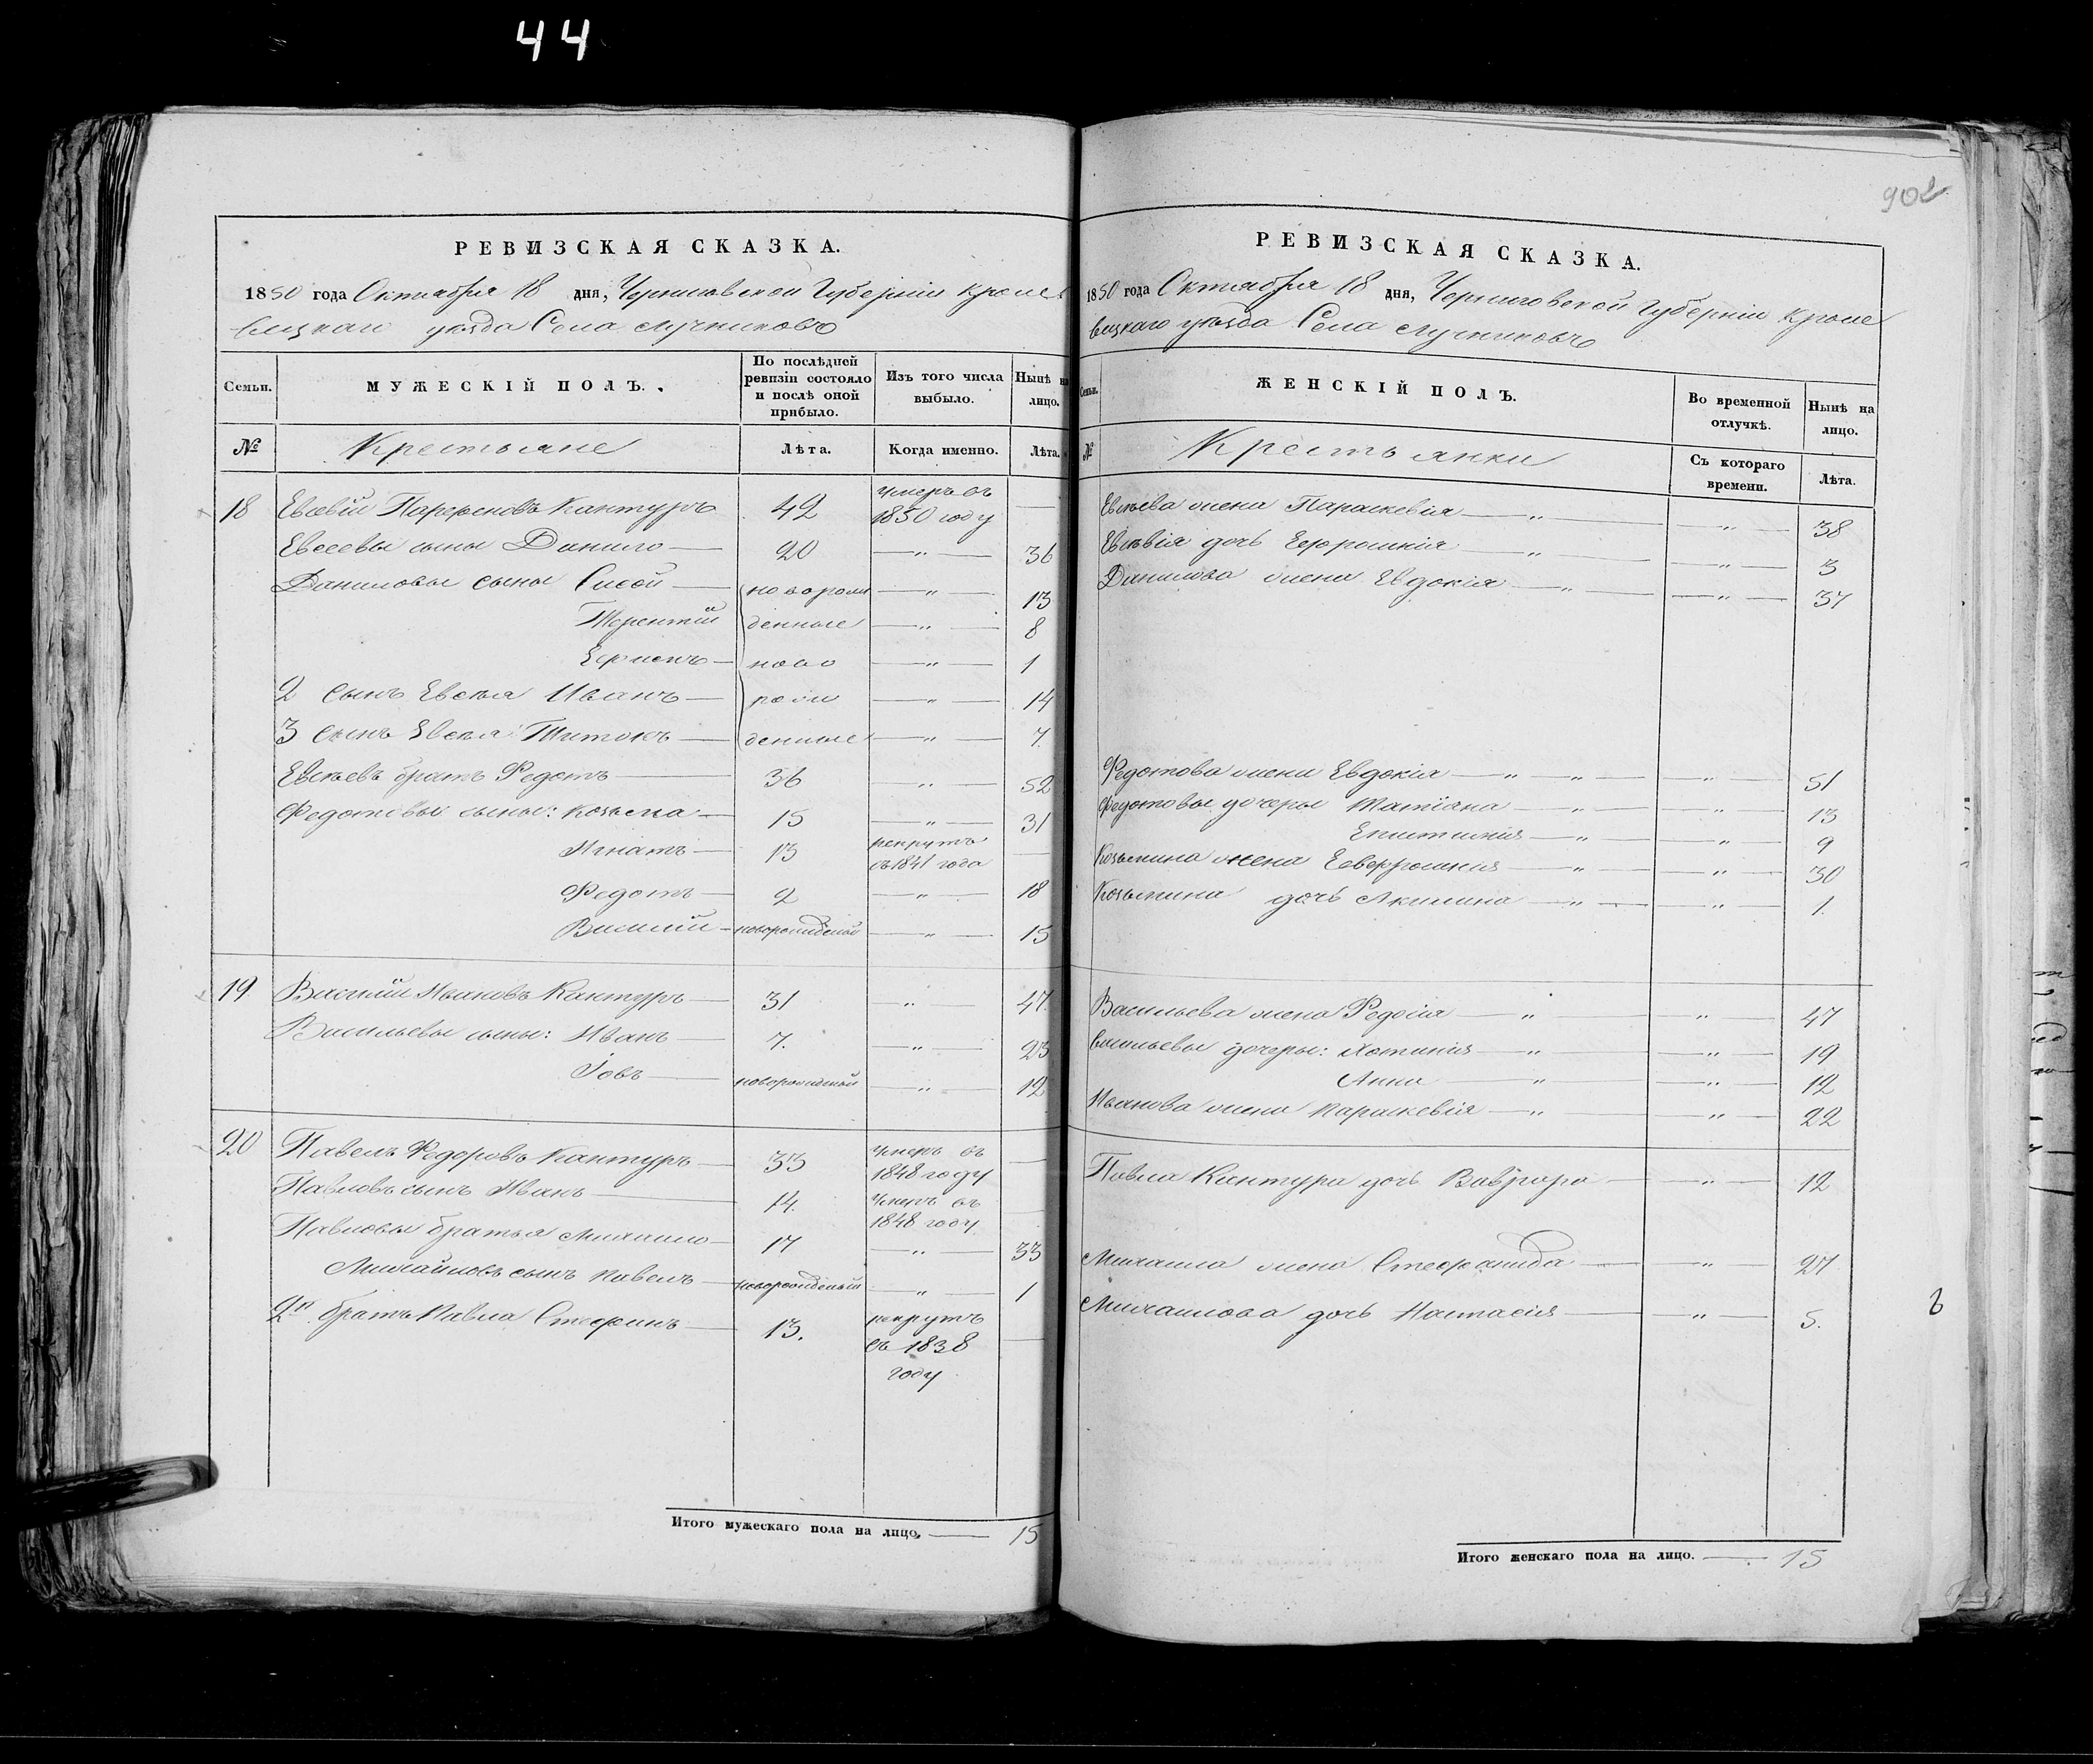 44
902
РЕВИЗСКАЯ СКАЗКА.
1850 года Октября 18 дня, Черниговской Губерніи Кролев
вецкаго уѣзда Села Лучниковъ
Семьи. МУЖЕСКІЙ ПОЛЪ. По послѣдней ревизіи состояло и послѣ оной прибыло. Изъ того числа выбыло. Нынѣ на лицо.
№ Крестьяне Лѣта. Когда именно. Лѣта.
18 Евсѣвій Парфеновъ Кантуръ 42 умеръ въ 1850 году —
Евсеевы сыны Данило — 20 — " — 36
Даниловы сыны Сисой — новорож — " — 13
Терентій денные — " — 8
Ефимъ — ново — " — 1
2 сынъ Евсѣя Иванъ — рож — " — 14
3 сынъ Евсѣя Титокъ — денные — " — 7.
Евсѣевъ братъ Федотъ — 36 — " — 52
Федотовы сыны: Козьма — 15 — " — 31
Игнатъ — 13 рекрутъ съ 1841 года —
Федотъ — 2 — " — 18
Василій — новорожденый — " — 15
19 Василій Ивановъ Кантуръ — 31 — " — 47.
Васильевы сыны: Иванъ — 7. — " — 23
Іовъ — новорожденый — " — 12
20 Павелъ Федоровъ Кантуръ — 33 умеръ въ 1848 году —
Павловъ сынъ Иванъ — 14. Умеръ въ 1848 году —
Павловы братья Михайло — 17 — " — 33
Михайловъ сынъ Павелъ — новорожденый — " — 1
2й братъ Павла Стефанъ — 13. рекрутъ съ 1838 году —
Итого мужескаго пола на лицо. — 15
РЕВИЗСКАЯ СКАЗКА.
1850 года Октября 18 дня, Черниговской Губерніи Кроле
вецкаго уѣзда Села Лучниковъ
Семьи. ЖЕНСКІЙ ПОЛЪ. Во временной отлучкѣ. Нынѣ на лицо.
№ Крестьянки Съ котораго времени. Лѣта.
Евсѣева жена Параскевія — " — — " — 38
Евсѣвія дочь Ефросинія — " — — " — 3
Данилова жена Евдокія — " — — " — 37
Федотова жена Евдокія — " — " — — " — 51
Федотовы дочеры Татіана — " — — " — 13
— " — — " — 9
Козьмина жена Евфросинія — " — — " — 30
Козьмина дочь Акилина — " — — " — 1.
Васильева жена Федосія — " — — " — 47
Васильевы дочеры: Хотинія — " — — " — 19
Анна " — — " — 12
Иванова жена Параскевія — " — — " — 22
Павла Кантура дочь — " — 12
Михаила жена Стефанида — — " — 27
Михаилова дочь Настасія — — " — 5.
Итого женскаго пола на лицо. — 15